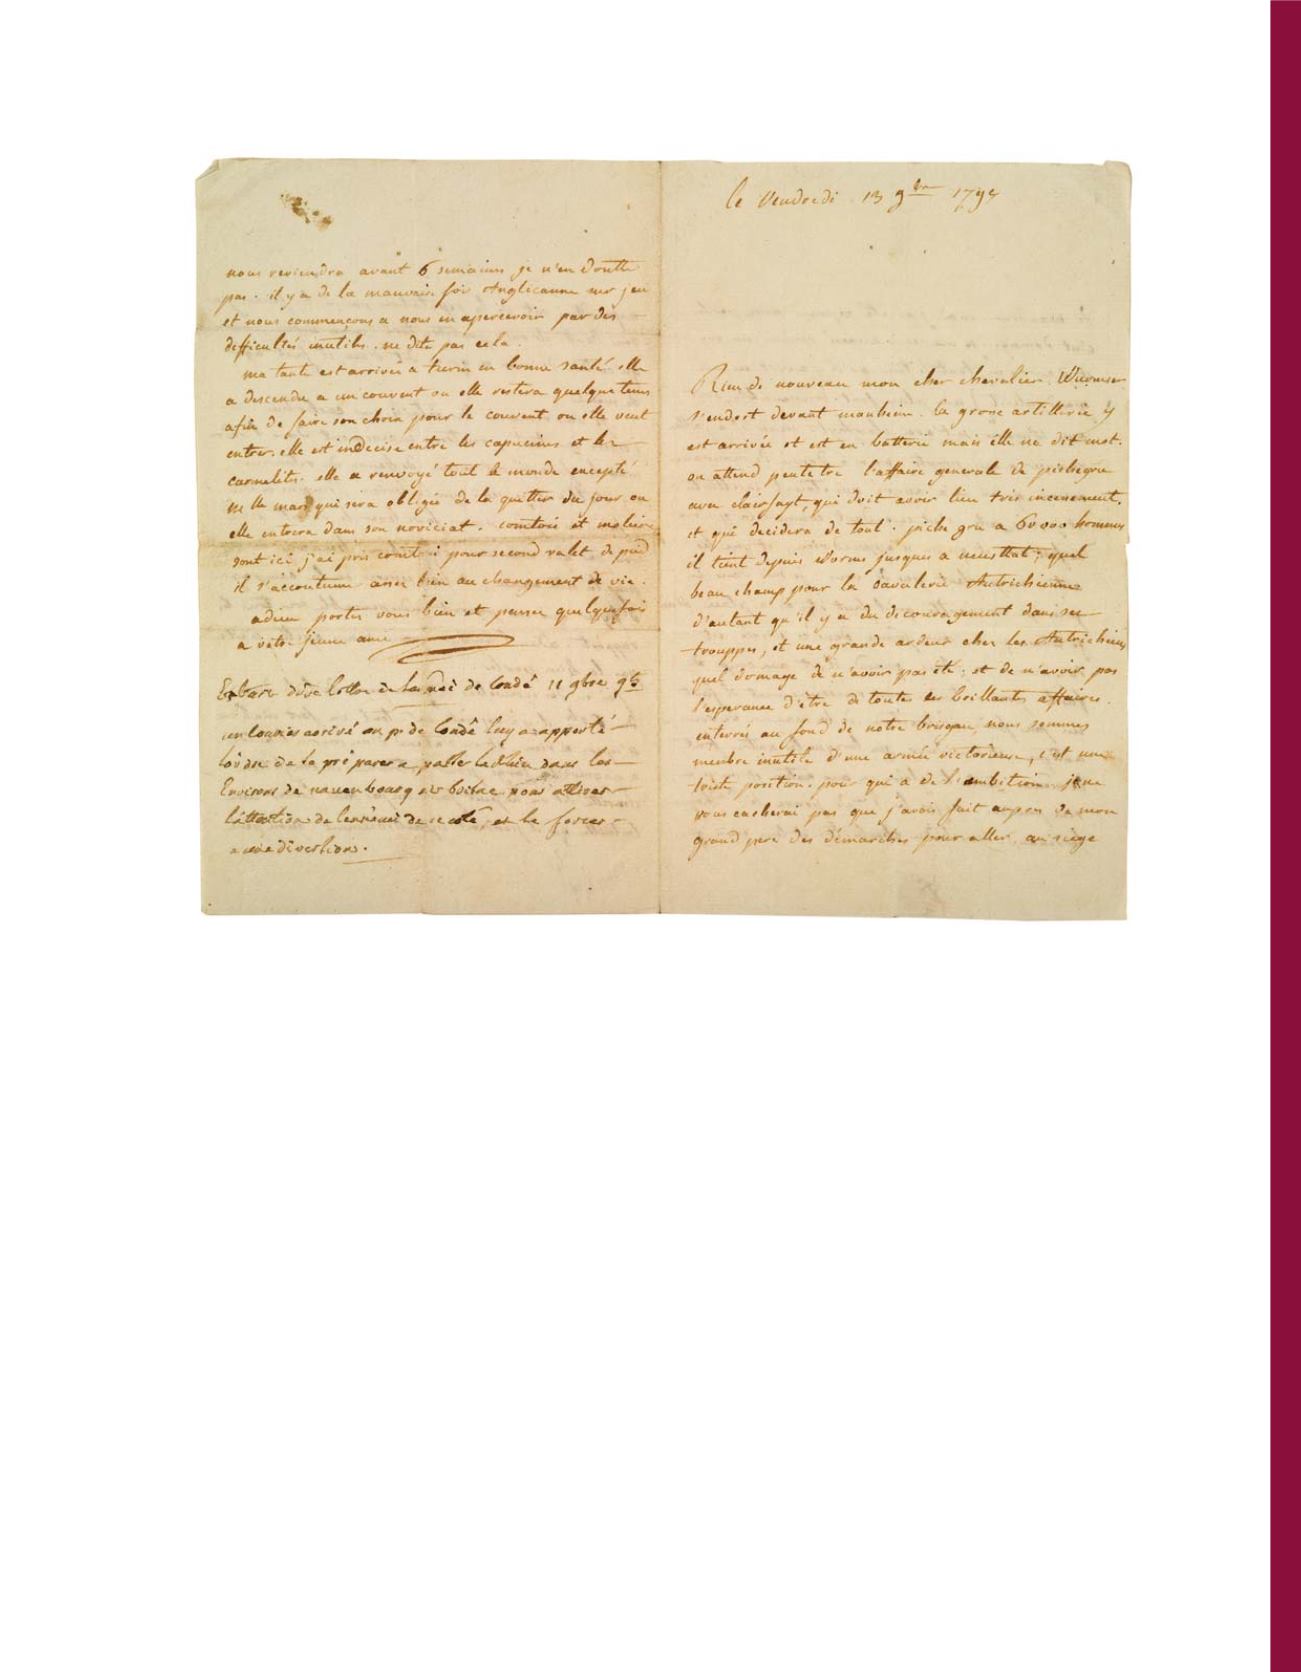 nous reviendra avant 6 semaines je n'en doutte
pas. il y a de la mauvaise foi Anglicanne sur jeu
et nous commençons a nous en apercevoir par des
difficultés inutiles. ne dite pas cela.
ma tante est arrivée a turin en bonne santé. elle
a descendu a un couvent ou elle restera quelque tems
afin de faire son choix pour le couvent ou elle veut
entrer. elle est indecise entre les capucines et les
carmelites. elle a renvoyé tout le monde excepté
melle mars qui sera obligée de la quitter du jour ou
elle entrera dans son noviciat. comtois et moliere
sont ici j'ai pris comtoi pour second valet de pied
il s'accoutume assez bien au changement de vie.
adieu portez vous bien et penser quelquefois
a votre jeune ami
Extrait d'une lettre de de Condé 11 9bre 95
un courier arrivé au p. de Condé luy a apporté
l'ordre de se préparer a passer le Rhin dans les
Environs de pour attirer
l'attention de l'ennemi de ce coté, et le forcer
a une diversion.
le Vendredi 13 9bre 1795
Rien de nouveau mon cher chevalier. Wurmser
s'endort devant manheim. la grosse artillerie y
est arrivée et est en batterie mais elle ne dit mot.
on attend peutetre l'affaire generale de pichegru
avec clairfayt, qui doit avoir lieu tres incessement.
et qui decidera de tout. pichegru a 60000 hommes
il tient depuis Worms jusques a neustat; quel
beau champ pour la cavalerie Autrichienne
d'autant qu'il y a du decouragement dans ses
trouppes, et une grande ardeur chez les Autrichiens
quel domage de n'avoir pas été; et de n'avoir pas
l'esperance d'être de toutes ces brillantes affaires.
enterrés au fond de notre brisgau, nous sommes
membre inutile d'une armée victorieuse, c'est une
triste position. pour qui a de l'ambition. je ne
vous cacherai pas que j'avois fait aupres de mon
grand pere des démarches pour aller au siege